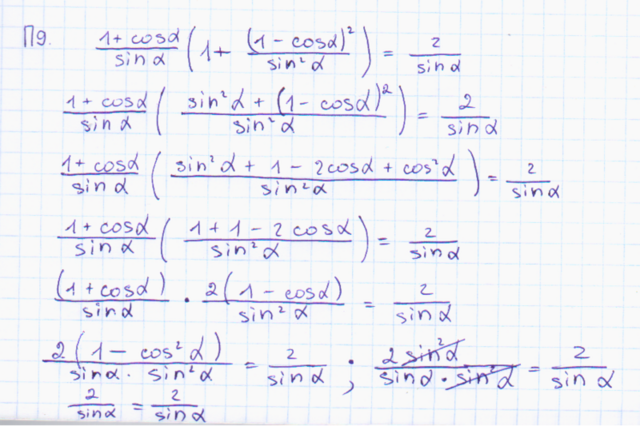 П9. \frac{1+cosα}{sin α} (1 + \frac{(1 - cosα)²}{sin²α}) = \frac{2}{sin α}
\frac{1+cosα}{sin α} (\frac{sin²α + (1 - cosα)²}{sin²α}) = \frac{2}{sin α}
\frac{1+cosα}{sin α} (\frac{sin²α + 1 - 2cosα + cos²α}{sin²α}) = \frac{2}{sin α}
\frac{1+cosα}{sin α} (\frac{1 + 1 - 2cosα}{sin²α}) = \frac{2}{sin α}
\frac{(1+cosα)}{sin α} · \frac{2(1 - cosα)}{sin²α} = \frac{2}{sin α}
\frac{2(1 - cos²α)}{sin α · sin²α} = \frac{2}{sin α} ; \frac{2 sin²α}{sin α · sin²α} = \frac{2}{sin α}
\frac{2}{sin α} = \frac{2}{sin α}